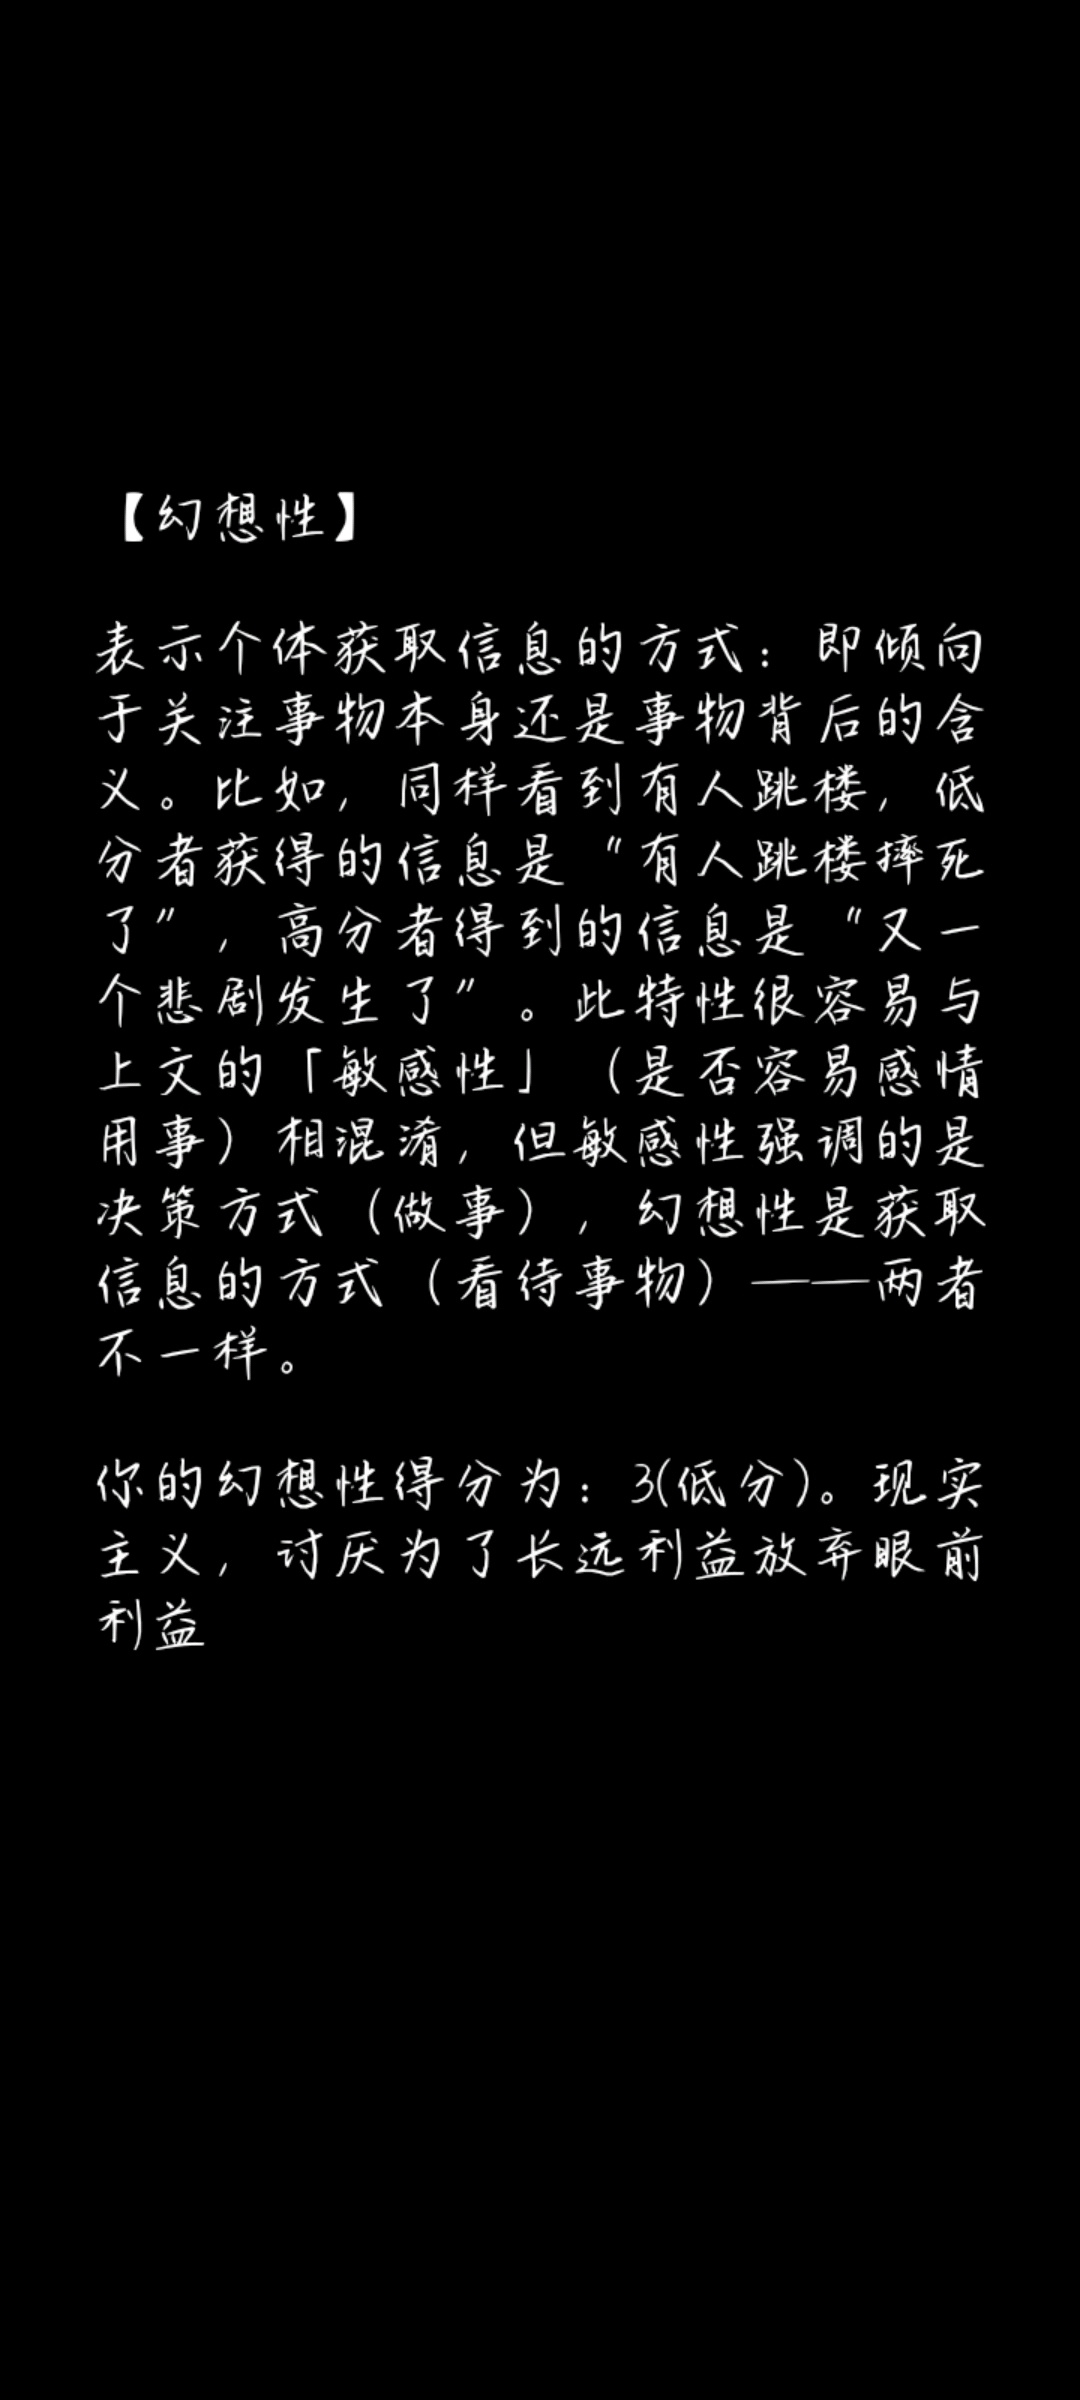 【幻想性】
表示个体获取信息的方式：即倾向
于关注事物本身还是事物背后的含
义。比如，同样看到有人跳楼，低
分者获得的信息是“有人跳楼摔死
了”，高分者得到的信息是“又一
个悲剧发生了”。此特性很容易与
上文的「敏感性」（是否容易感情
用事）相混淆，但敏感性强调的是
决策方式（做事），幻想性是获取
信息的方式（看待事物）——两者
不一样。
你的幻想性得分为：3(低分)。现实
主义，讨厌为了长远利益放弃眼前
利益